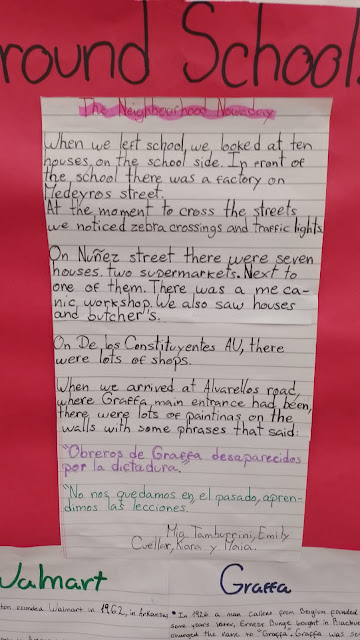 round School
The Neighbourhood Nowaday
When we left school, we looked at ten
houses, on the school side. In front of
the school there was a factory on
Medeyros street.
At the moment to cross the streets
we noticed zebra crossings and traffic lights.
On Nuñez street there were seven
houses. two supermarkets. Next to
one of them. There was a meca-
nic workshop. We also saw houses
and butcher's.
On De los Constituyentes AV, there
were lots of shops.
When we arrived at Alvarellos road,
where Graffa, main entrance had been,
there were lots of paintinas on the
walls with some phrases that said:
"Obreros de Graffa desaparecidos
por la dictadura."
"No nos quedamos en el pasado, apren-
dimos las lecciones.
Mia Tamborrini, Emily
Cuellar, Kiara y Maia.
Walmart
Graffa
ton founded Walmart in 1962, in Arkansas
In 1926 a man from Belgium founded
some years later, Ernest Bunge bought in
changed the name to "Graffa". Graffa was